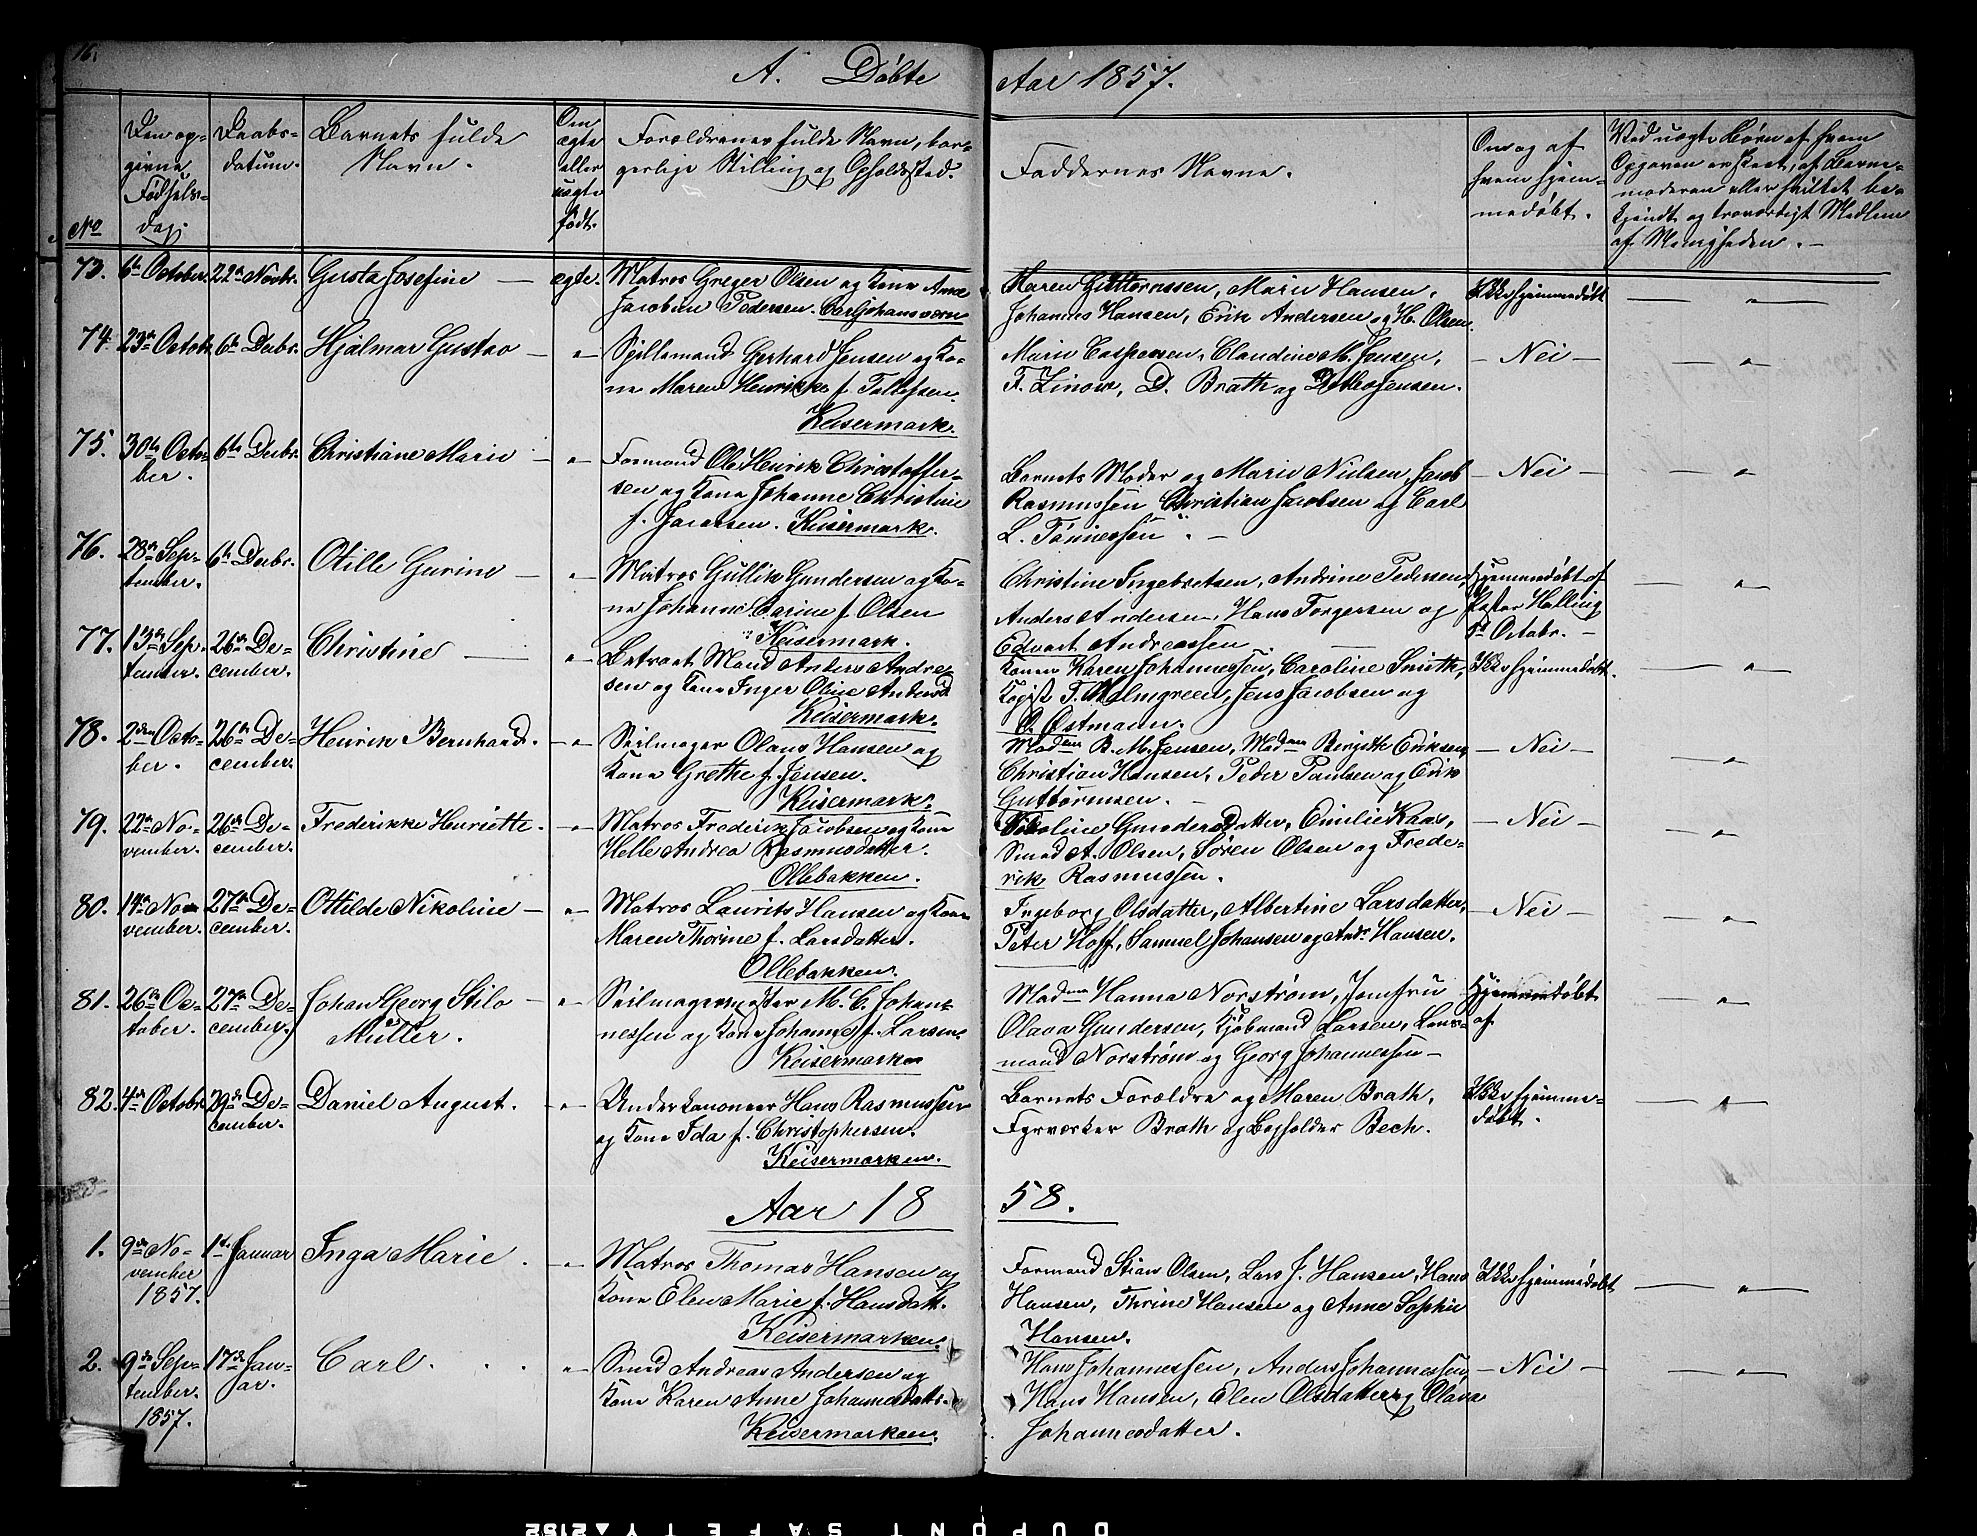 16.
A. Döbte Aar 1857.
No
Den op-
givne
Födsels-
dag.
Daabs-
datum.
Barnets fulde
Navn.
Om
ægte
eller
uægte
födt.
Forældrenes fulde Navn, bor-
gerlige Stilling og Opholdssted.
Faddernes Navne.
Om og af
hvem hjem-
medöbt.
Ved uægte Börn af hvem
Opgaven er skeet, af Barne-
moderen eller hvilket be-
kjendt og troværdigt Medlem
af Menigheden. —
73. 6te October. 22de Novbr. Gusta Josefine — ægte. Matros Greger Olsen og Kone Anne
Jacobine Pedersen. Carljohansværn
Maren Guttormssen, Marie Hansen,
Johannes Hansen, Erik Andersen og H. Olsen.
Ikke hjemmedöbt
74. 23de Octob. 6te Decbr. Hjalmar Gustav — " — Spillemand Gerhard Jensen og Ko-
ne Maren Henrikke f. Tollefsen.
Keisermark.
Marie Caspersen, Claudine M. Jensen,
F. Linow, D. Brath og Ditlev Jensen.
— Nei —
75. 30te Octo-
ber. 6te Decbr. Christiane Marie — " — Formand Ole Henrik Christoffer-
sen og Kone Johanne Christine
f. Jacobsen. Keisermark.
Barnets Moder og Marie Nielsen, Jacob
Rasmussen Christian Jacobsen og Carl
L. Tönnessen. —
— Nei —
76. 28de Sep-
tember. 6te Decbr. Otille Gurine — " — Matros Gullik Gundersen og Ko-
ne Johanne Carine f. Olsen
Keisermark.
Christine Ingebretsen, Andrine Pedersen,
Anders Andersen, Hans Torgersen og
Edvart Andreassen
Hjemmedöbt af
Pastor Halling
Octobr. —
77. 13de Sep-
tember. 26de De-
cember. Christine — " — Betroet Mand Anders Andre-
sen og Kone Inger Oline
Keisermark.
Konen Karen Johannessen, Caroline Smith,
T. Malmgreen, Jens Jacobsen og
O. Östmann.
Ikke hjemmedöbt.
78. 2den Octo-
ber. 26de De-
cember. Henrik Bernhard. — " — Seilmager Olaus Hansen og
Kone Grethe f. Jensen.
Keisermark.
Madam B. M. Jensen, Madam Birgithe Eriksen,
Christian Hansen, Peder Paulsen og Erik
Guttormsen. —
— Nei —
79. 22de No-
vember. 26de De-
cember. Frederikke Henriette. — " — Matros Frederik Jacobsen og Kone
Helle Andrea Rasmusdatter.
Ollebakken.
Nikoline Gundersdatter, Emilie Kaas,
Smed A. Olsen, Sören Olsen og Frede-
rik Rasmussen.
— Nei —
80. 14de No-
vember. 27de De-
cember. Ottilde Nikoline — " — Matros Laurits Hansen og Kone
Maren Thorine f. Larsdatter.
Ollebakken.
Ingeborg Olsdatter, Albertine Larsdatter,
Peter Hoff, Samuel Johansen og Andr. Hansen.
— Nei —
81. 26de Oc-
tober. 27de De-
cember. Johan Georg Stilo
Müller. — " — Seilmagermester M. C. Johan-
nessen og Kone Johanne f. Larsen.
Keisermarken
Madam Hanna Norström, Jomfru
Olava Gundersen, Kjöbmand Larsen,
mand Norström og Georg Johannessen —
Hjemmedöbt
af
82. 4de Octobr. 29de De-
cember. Daniel August. — " — Underkanoneer Hans Rasmussen
og Kone Ida f. Christophersen.
Keisermarken.
Barnets Forældre og Maren Brath,
Fyrværker Brath og Bogholder Bech.
Ikke hjemme-
döbt.
Aar 1858.
1. 9de No-
vember
1857. 1ste Januar Inga Marie. — " Matros Thomas Hansen og
Kone Elen Marie f. Hansdatt.
Keisermarken.
Formand Stian Olsen, Lars J. Hansen, Hans
Hansen, Thrine Hansen og Anne Sophie
Hansen.
Ikke hjemmedöbt
2. 9de Sep-
tember
1857. 17de Jan-
uar. Carl. . . " — Smed Andreas Andersen og
Kone Karen Anne Johannesdatt.
Keisermarken.
Hans Johannessen, Anders Johannessen,
Hans Hansen, Elen Olsdatter og Olava
Johannesdatter.
— Nei —
2152
DUPONT SAFETY